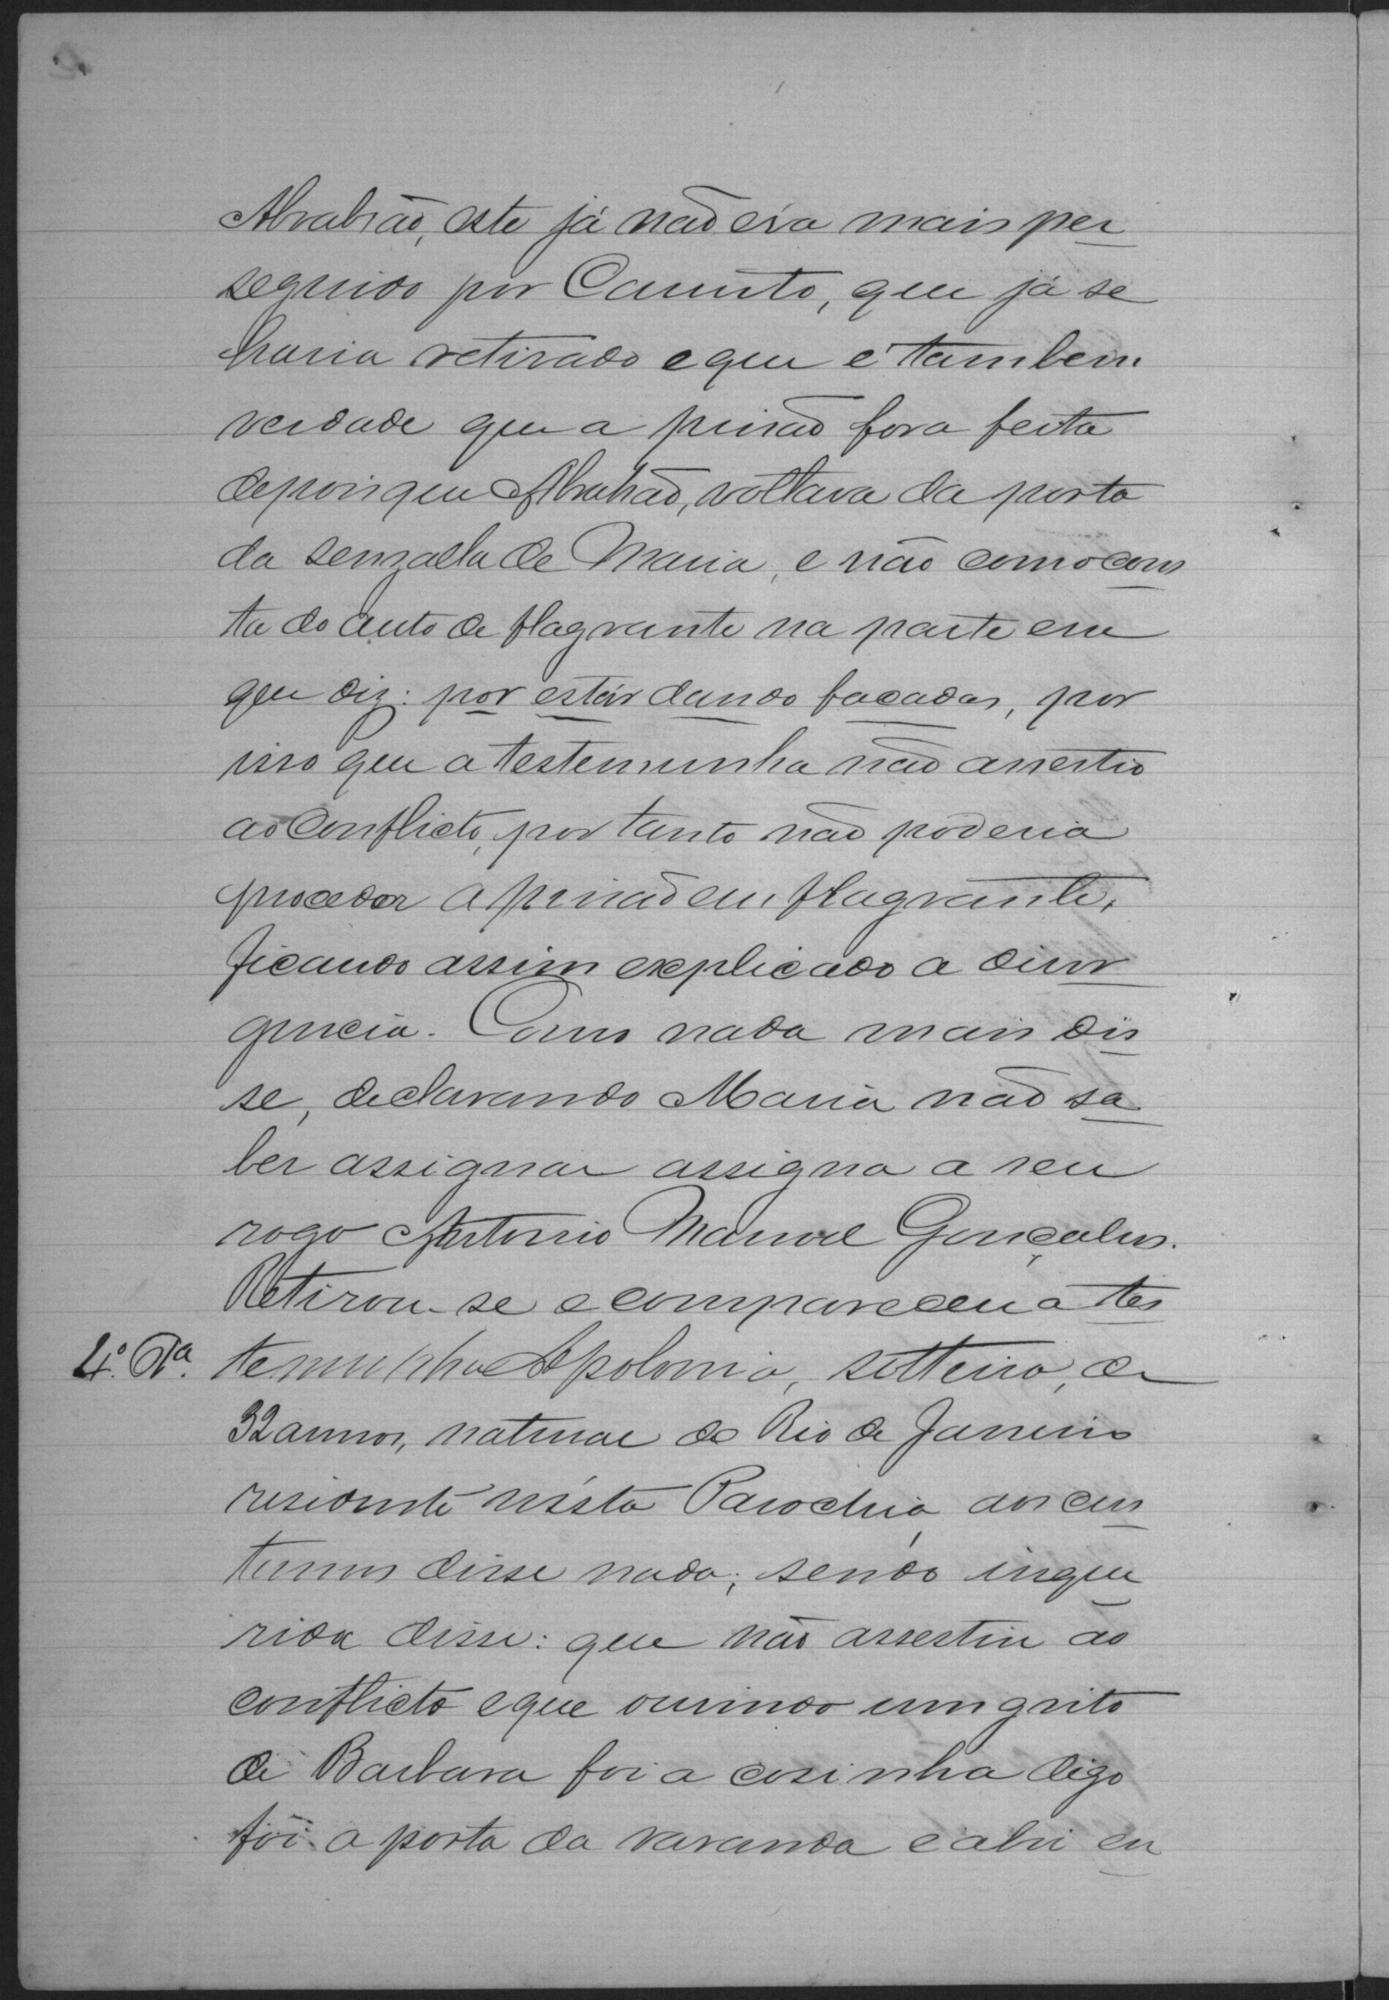 Abrahão, este já não éra mais per
seguido por Canuto, que já se
havia retirado e que é tambem
verdade que a prisão fora feita
depois que Abrahão, voltava da porta
da senzalla de Maria, e não como cons
ta do auto de flagrante na parte em
que diz: por estár dando facadas, por
isso que a testemunha não assestio
ao Conflicto, por tanto não poderia
proceder a prisão em flagrante,
ficando assim explicado a diver
gencia. Como nada mais dis
se, declarando Maria não sa
ber assignar assigna a seu
rogo Antonio Manoel Gonçalves.
Retirou-se e compareceu a tes
4.º Ta. temunha Apolonia, solteira, de
32 annos, natural do Rio de Janeiro
residente nésta Parochia, aos cus
tumes disse nada; sendo inque
rida disse: que não assestiu ao
conflicto e que ouvindo um grito
de Barbara foi a cosinha digo
foi a porta da varanda e ahi en